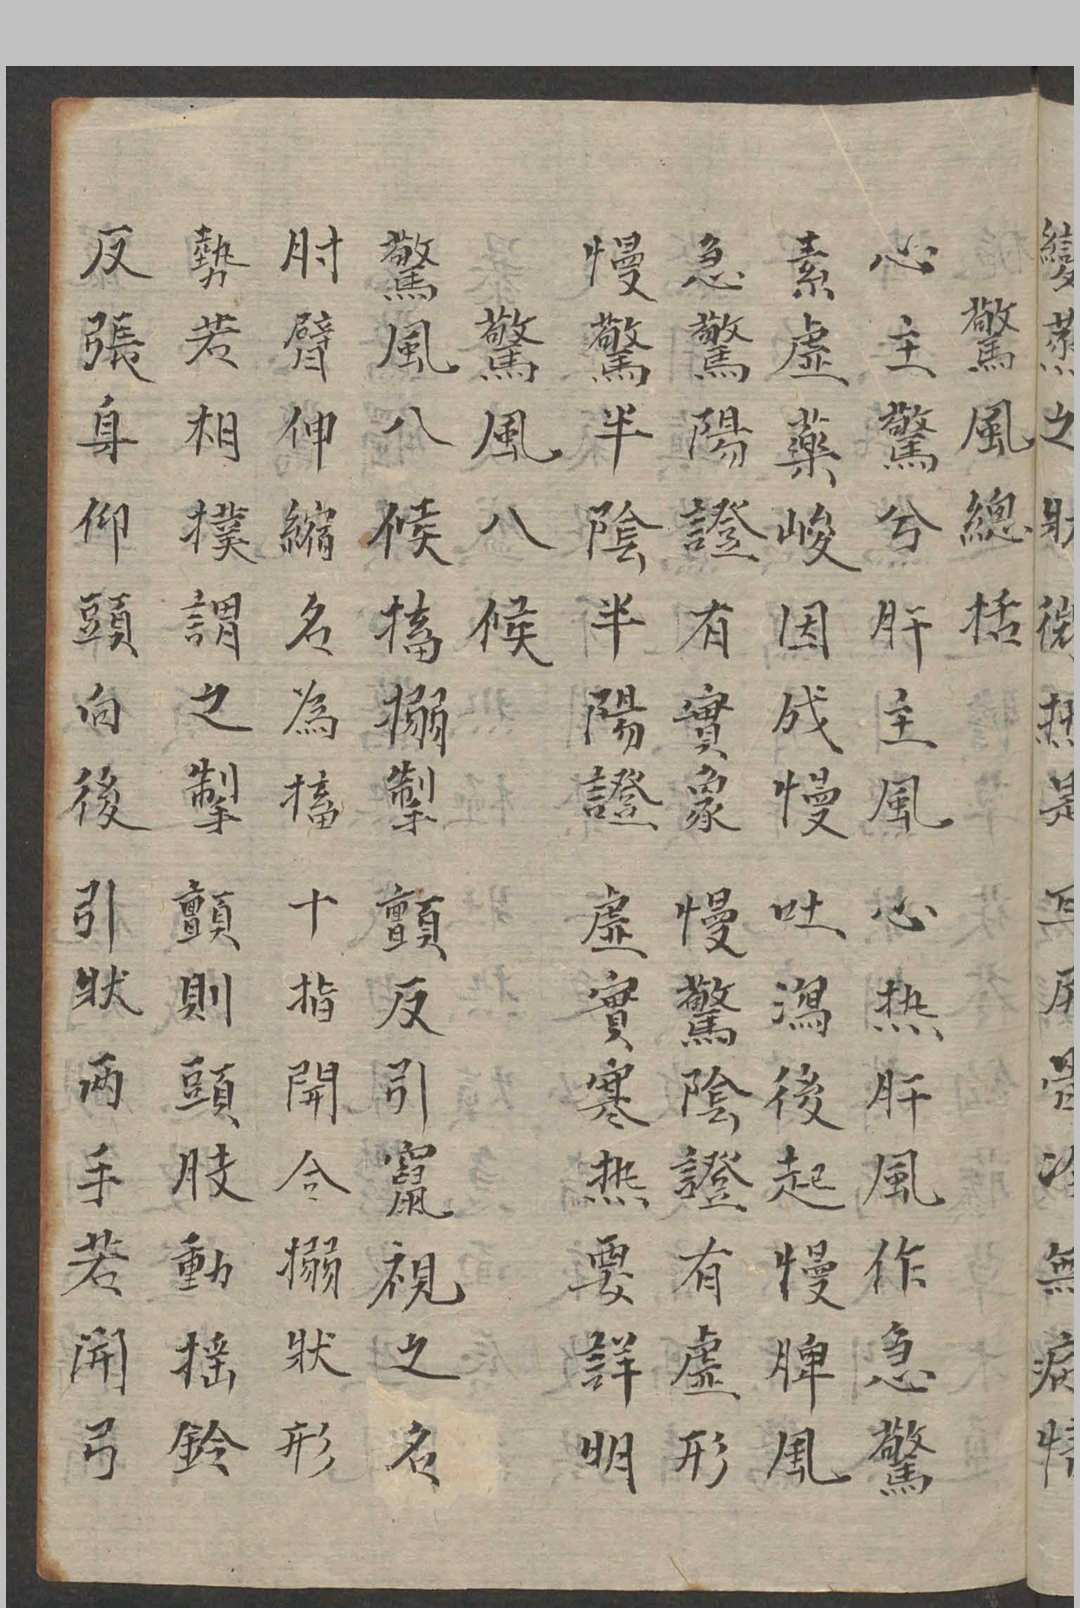 變蒸之狀微热是 耳尻骨冷無病情
驚風總括
心主驚兮肝主風 心热肝風作急驚
素虛藥峻因成慢 吐瀉後起慢脾風
急驚陽證有實象 慢驚陰證有虛形
慢驚半陰半陽證 虛實寒热要詳明
驚風八候
驚風八候搐搦掣 顫反引竄視之名
肘臂伸縮名為搐 十指開合搦狀形
勢若相撲謂之掣 顫則頭肢動搖鈴
反張身仰頭向後 引狀两手若開弓